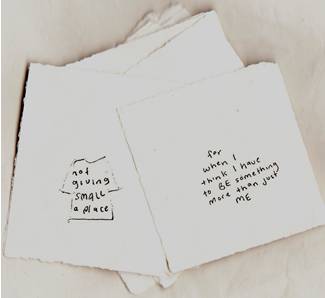 not
giving
small
a place
for
when I
think I have
to BE something
more than just
ME